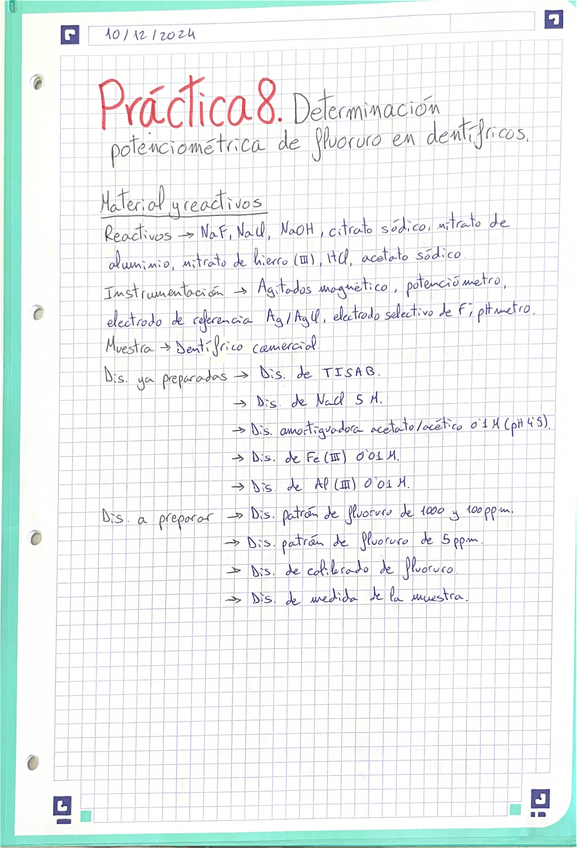 10/12/2024
Práctica 8. Determinación
potenciométrica de fluoruro en dentífricos.
Material y reactivos
Reactivos → NaF, NaCl, NaOH, citrato sódico, nitrato de
aluminio, nitrato de hierro (III), HCl, acetato sódico
Instrumentación → Agitados magnético, potenciómetro,
electrodo de referencia Ag/AgCl, electrodo selectivo de F⁻, pHmetro.
Muestra → Dentífrico comercial
Dis. ya preparadas → Dis. de TISAB.
→ Dis. de NaCl 5 M.
→ Dis. amortiguadora acetato/acético 0'1 M (pH 4'5).
→ Dis. de Fe (III) 0'01 M.
→ Dis. de Al (III) 0'01 M.
Dis. a preparar → Dis. patrón de fluoruro de 1000 y 100 ppm.
→ Dis. patrón de fluoruro de 5 ppm.
→ Dis. de calibrado de fluoruro
→ Dis. de medida de la muestra.